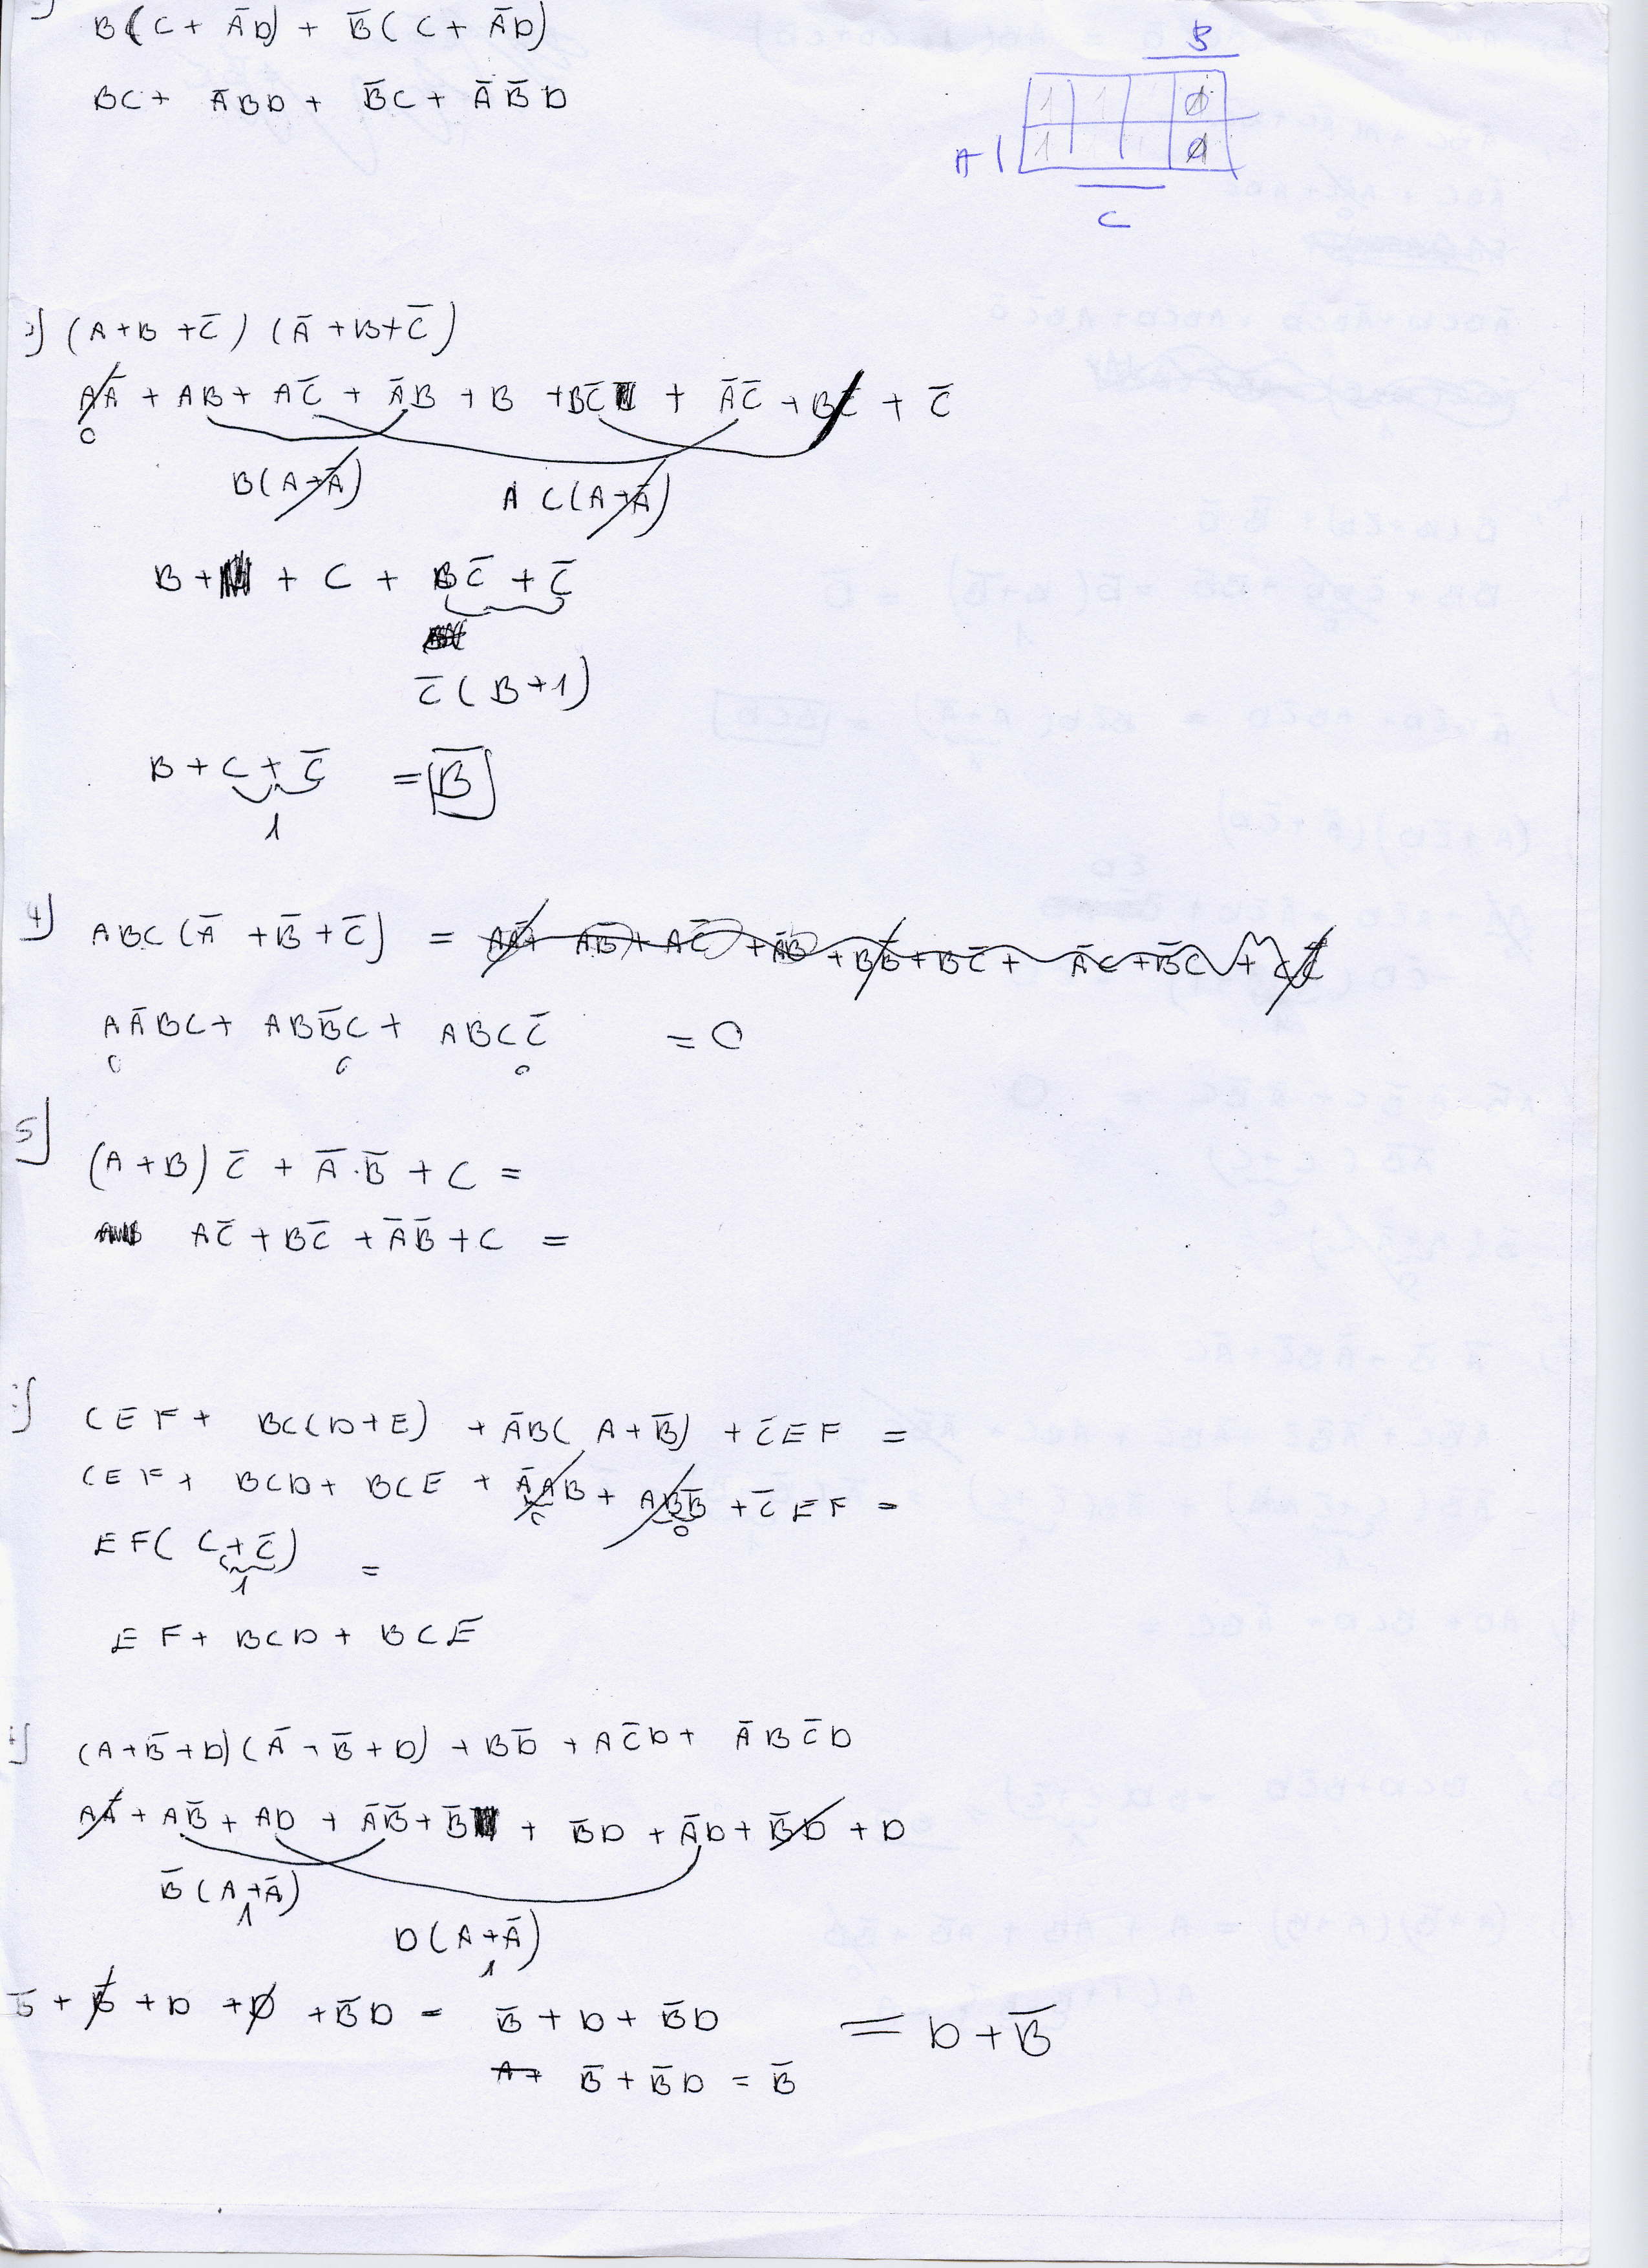 B(C + ĀD) + B̄(C + ĀD)
BC + ĀBD + B̄C + ĀB̄D
B
1 1 1
A 1
C
(A+B+C̄) (Ā+B+C̄)
AĀ + AB + AC̄ + ĀB + B + BC̄ + ĀC̄ + BC̄ + C̄
0
B(A+Ā) A C(A+Ā)
B + + C + BC̄ + C̄
C̄(B+1)
B + C + C̄ = B̄
1
4) ABC(Ā+B̄+C̄) = AĀ + AB̄ + AC̄ + ĀB + BB̄ + BC̄ + ĀC + B̄C + CC̄
AĀBC + ABB̄C + ABCC̄ = 0
0 0 0
5)
(A+B)C̄ + Ā·B̄ + C =
AC̄ + BC̄ + ĀB̄ + C =
CEF + BC(D+E) + ĀB(A+B̄) + C̄EF =
CEF + BCD + BCE + ĀAB + ABB̄ + C̄EF =
0 0
EF(C+C̄) =
1
EF + BCD + BCE
(A+B̄+D)(Ā+B̄+D) + BD̄ + AC̄D + ĀBC̄D
AĀ + AB̄ + AD + ĀB̄ + B̄ + B̄D + ĀD + B̄D + D
B̄(A+Ā)
1
D(A+Ā)
1
B̄ + B̄ + D + D + B̄D = B̄ + D + B̄D = D + B̄
A+ B̄ + B̄D = B̄